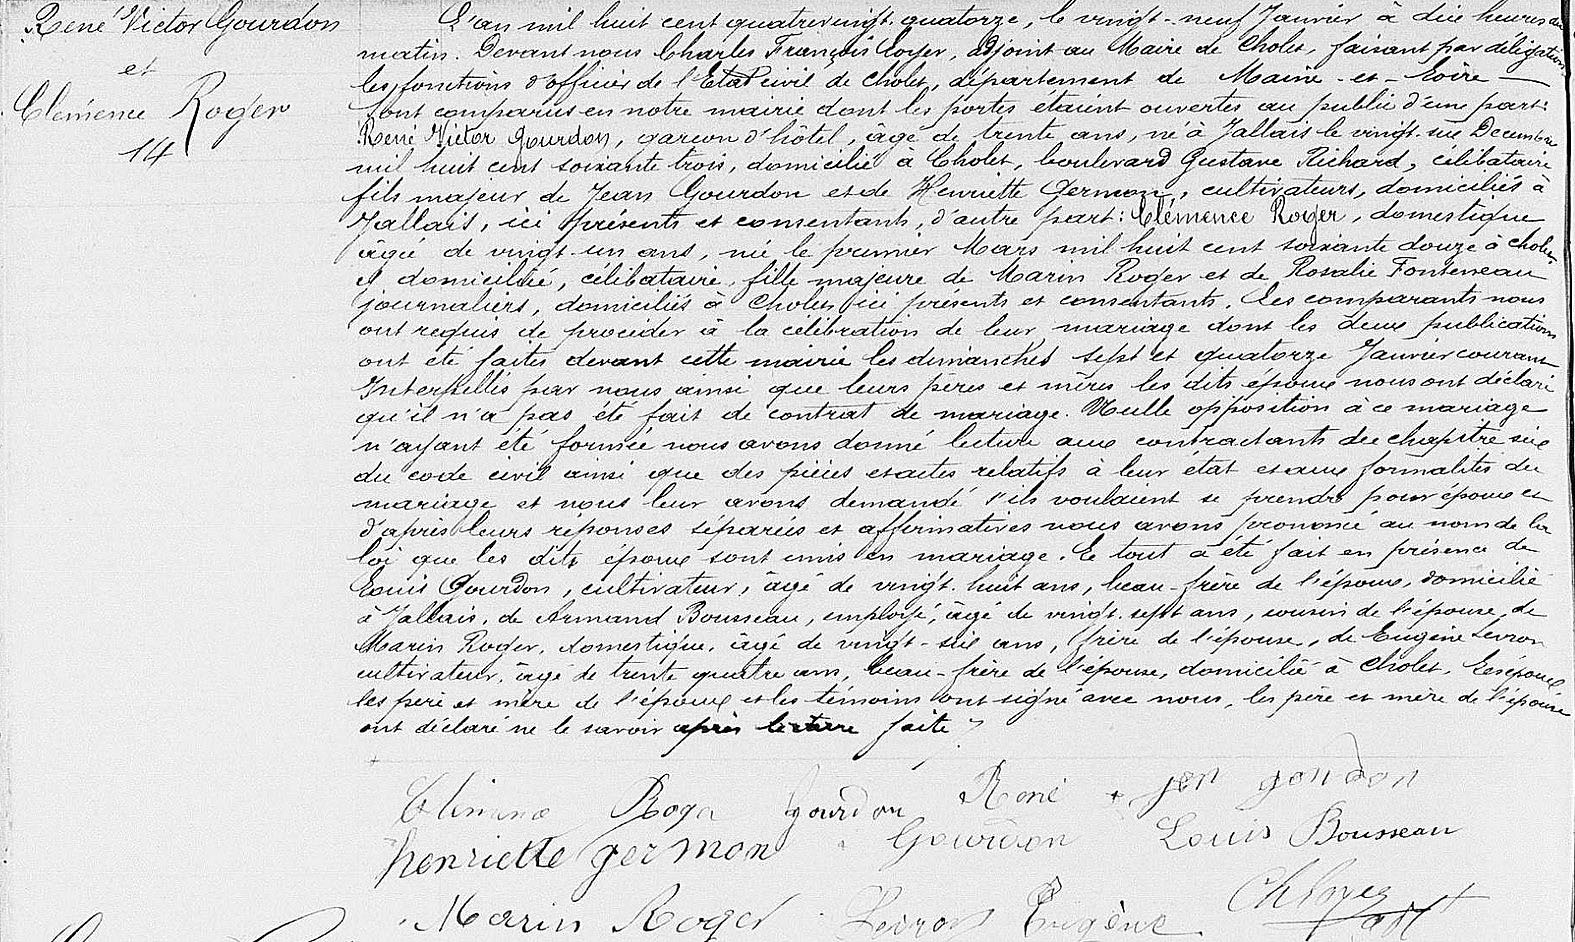 René Victor Gourdon
et
Clémence Roger
14
L'an mil huit cent quatrevingt-quatorze, le vingt-neuf Janvier à dix heures du
matin. Devant nous Charles François Loyer, adjoint au Maire de Cholet, faisant par délégation
les fonctions d'officier de l'Etat civil de Cholet, département de Maine-et-Loire
Sont comparus en notre mairie dont les portes étaient ouvertes au public d'une part:
René Victor Gourdon, garçon d'hôtel, âgé de trente ans, né à Jallais le vingt-six Décembre
mil huit cent soixante trois, domicilié à Cholet, boulevard Gustave Richard, célibataire
fils majeur de Jean Gourdon et de Henriette Germon, cultivateurs, domiciliés à
Jallais, ici présents et consentants, d'autre part: Clémence Roger, domestique
âgée de vingt-un ans, née le premier Mars mil huit cent soixante douze à Cholet
y domiciliée, célibataire, fille majeure de Marin Roger et de Rosalie Fonteneau
journaliers, domiciliés à Cholet, ici présents et consentants. Les comparants nous
ont requis de procéder à la célébration de leur mariage dont les deux publications
ont été faites devant cette mairie les dimanches sept et quatorze Janvier courant
Interpellés par nous ainsi que leurs pères et mères les dits époux nous ont déclaré
qu'il n'a pas été fait de contrat de mariage. Nulle opposition à ce mariage
n'ayant été formée nous avons donné lecture aux contractants du chapitre six
du code civil ainsi que des pièces et actes relatifs à leur état et aux formalités du
mariage et nous leur avons demandé s'ils voulaient se prendre pour époux et
d'après leurs réponses séparées et affirmatives nous avons prononcé au nom de la
loi que les dits époux sont unis en mariage. Le tout a été fait en présence de
Louis Gourdon, cultivateur, âgé de vingt-huit ans, beau-frère de l'époux, domicilié
à Jallais, de Armand Bousseau, employé, âgé de vingt-sept ans, cousin de l'épouse, de
Marin Roger, domestique, âgé de vingt-six ans, frère de l'épouse, de Eugène Levron
cultivateur, âgé de trente quatre ans, beau-frère de l'épouse, domicilié à Cholet. Les époux
les père et mère de l'époux et les témoins ont signé avec nous, les père et mère de l'épouse
ont déclaré ne le savoir après lecture faite
Clémence Roger Gourdon René jen gourdon
henriette germon Gourdon Louis Bousseau
Marin Roger Levron Eugène Ch Loyer adjt